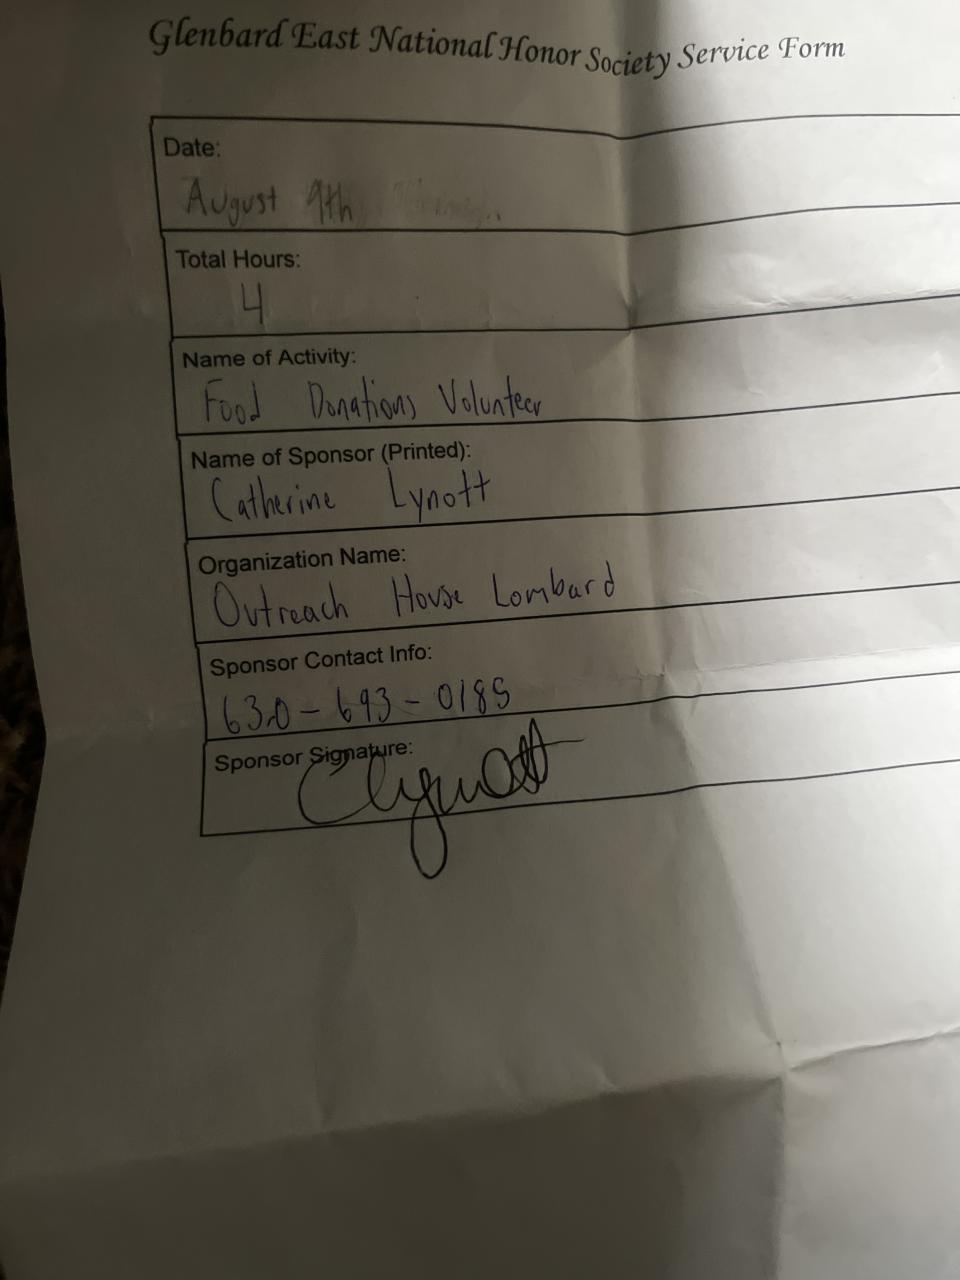 Glenbard East National Honor Society Service Form
Date:
August 9th
Total Hours:
4
Name of Activity:
Food Donations Volunteer
Name of Sponsor (Printed):
Catherine Lynott
Organization Name:
Outreach House Lombard
Sponsor Contact Info:
630-693-0185
Sponsor Signature:
Clynott